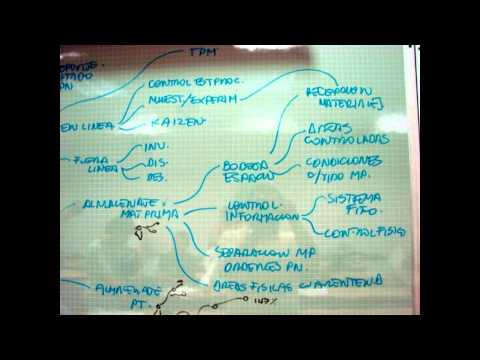 TPM
CONTROL EST PROC.
EN LINEA
MUEST/EXPERIM
KAIZEN
RECEPCION
MATERIALES
FUERA
LINEA
INV.
DIS.
DES.
AREAS
CONTROLADAS
BODEGA
ESPACIO
CONDICIONES
P/TIPO MP.
ALMACENATE
MAT PRIMA
CONTROL
INFORMACION
SISTEMA
FIFO.
CONTROL FISICO
SEPARACION MP
ORDENES PN.
AREAS FISICAS CUARENTENA
ALMACENATE
PT.